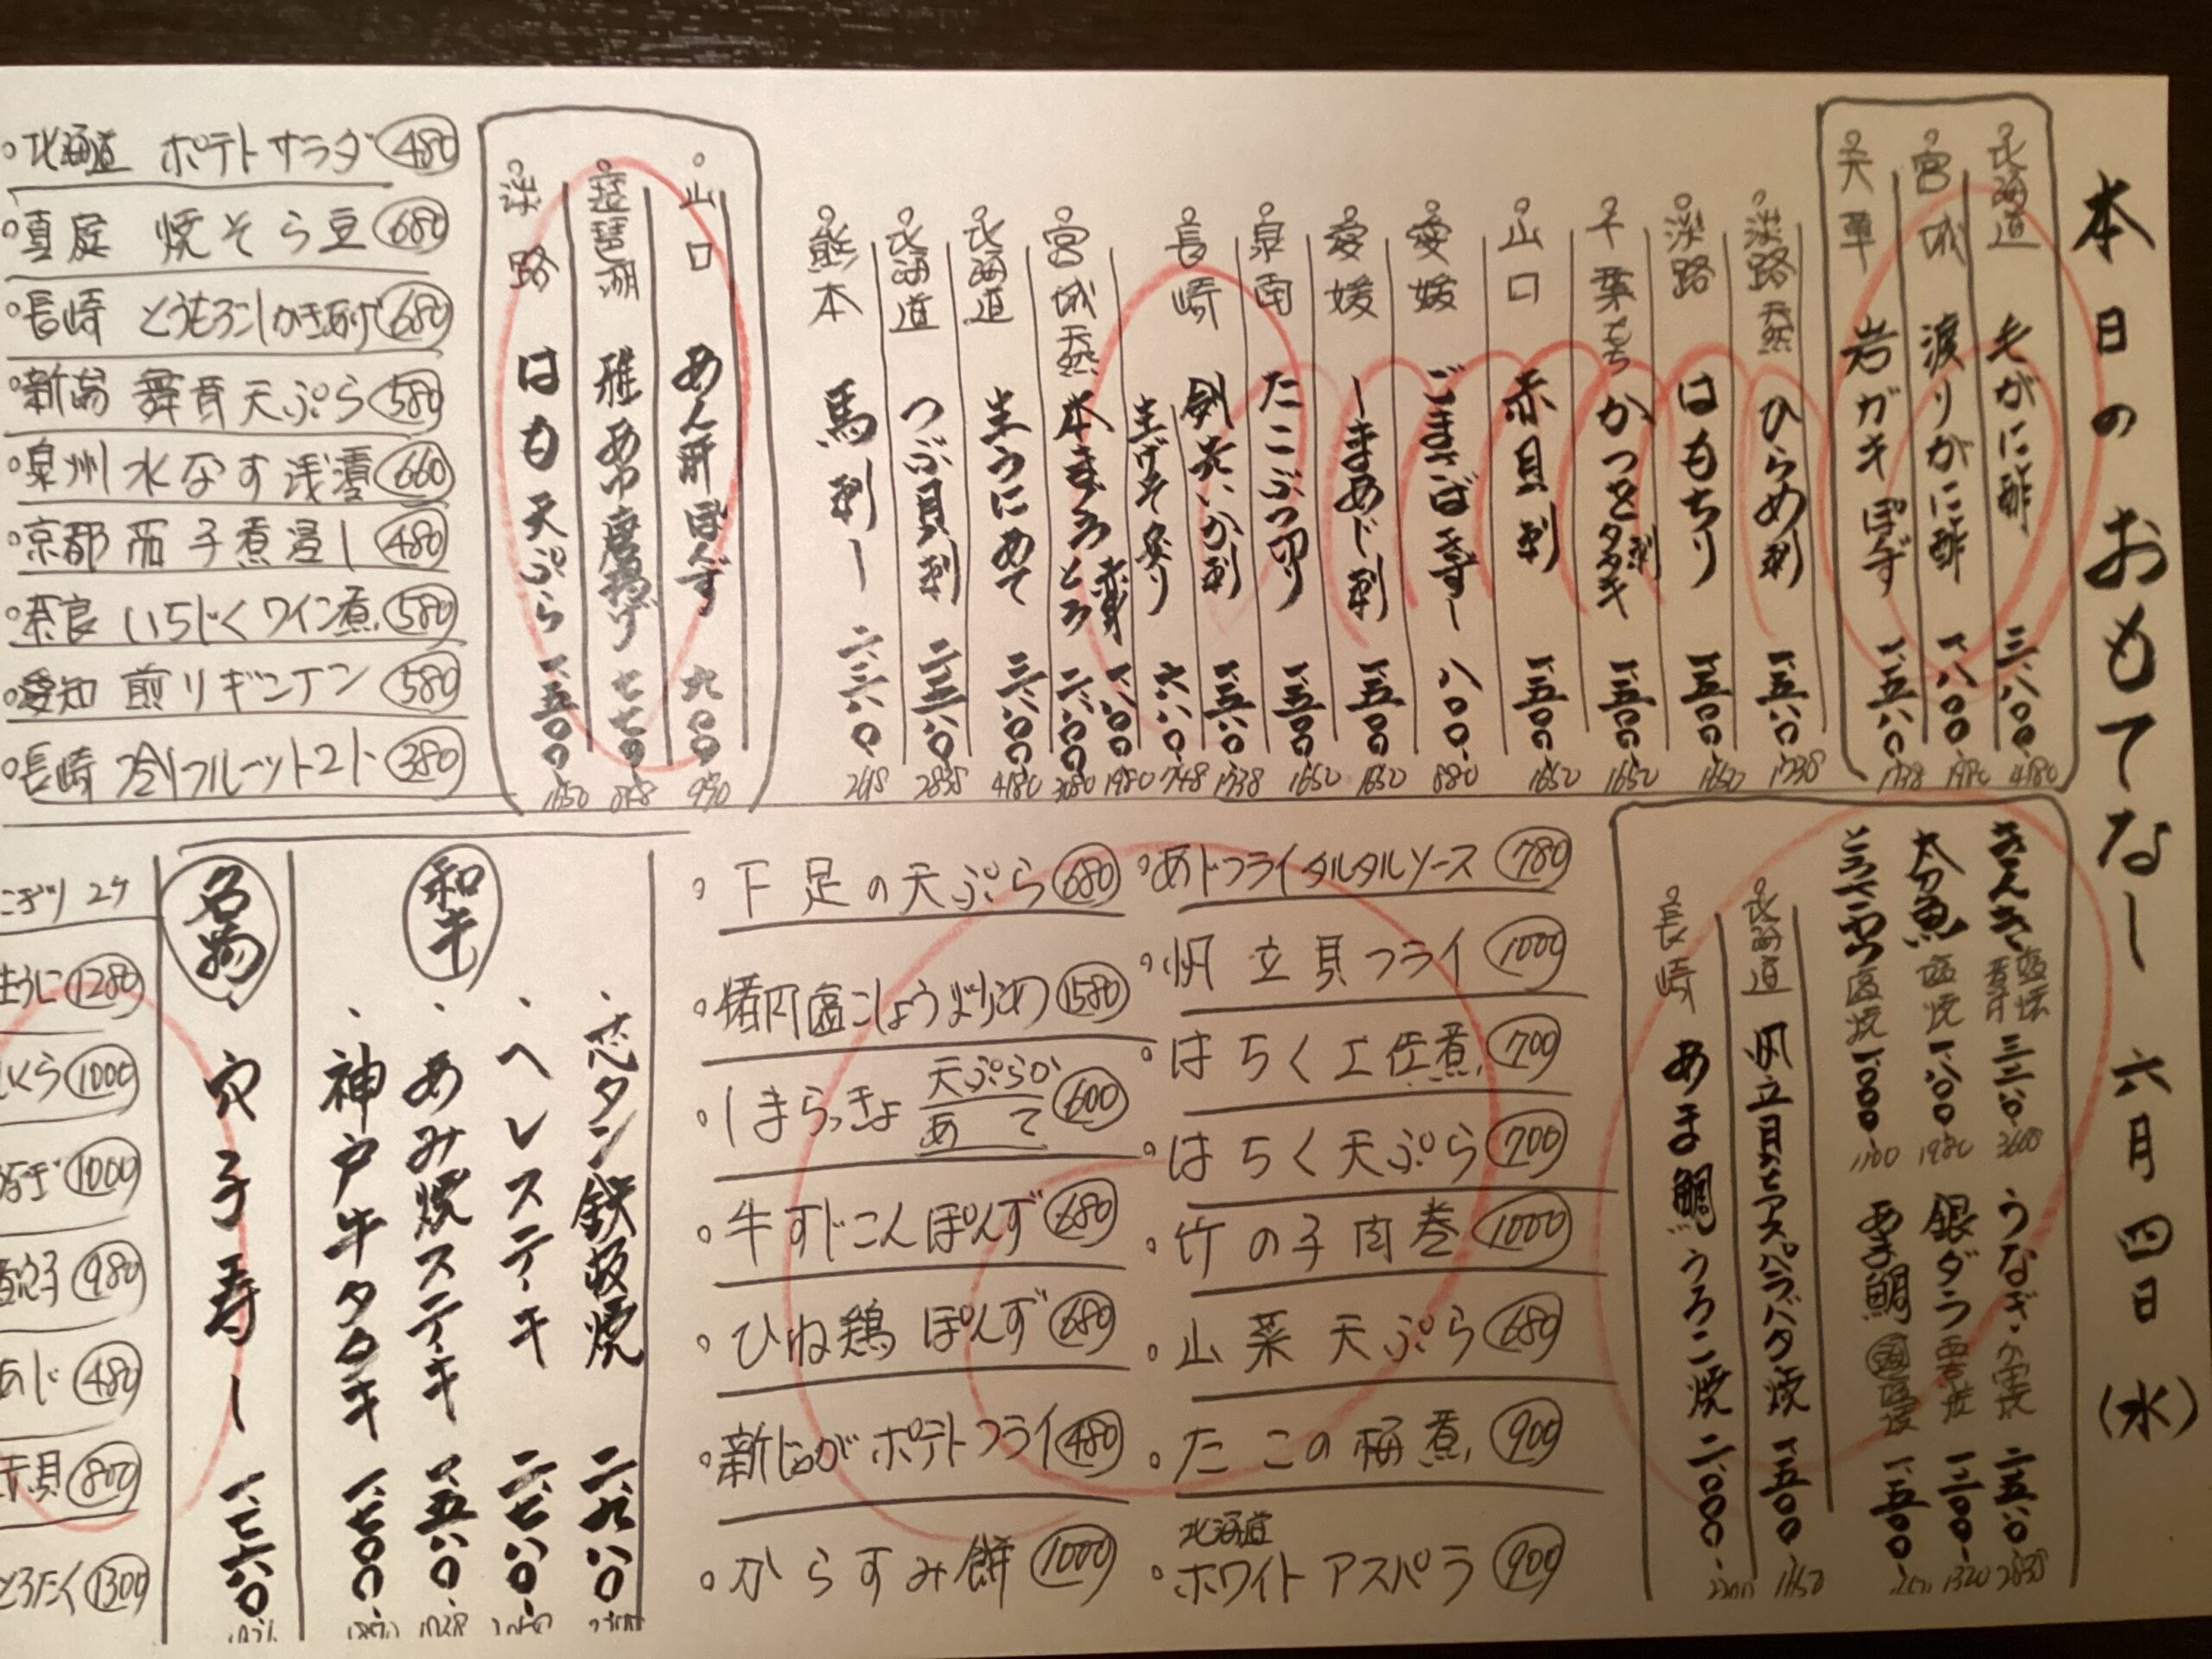 本日のおもてなし 六月四日(水)
北海道 毛がに酢 三、八〇〇 4180
宮城 渡りがに酢 一、八〇〇 1980
天草 岩ガキぽんず 一、五八〇 1738
淡路 天然 ひらめ刺 一、五八〇 1738
淡路 はもちり 一、五〇〇 1650
千葉 もち かつを刺 タタキ 一、五〇〇 1650
山口 赤貝刺 一、五〇〇 1650
愛媛 ごまさばきずし 八〇〇 880
愛媛 しまあじ刺 一、五〇〇 1650
泉南 たこぶつ切り 一、五〇〇 1650
長崎 剣先いか刺 一、五八〇 1738
生げそ炙り 六八〇 748
宮城 天然 本まぐろ 赤身 一、八〇〇 1980
とろ 二、八〇〇 3080
北海道 生うにめて 三、八〇〇 4180
北海道 つぶ貝刺 二、三八〇
熊本 馬刺し 二、三八〇 2618
山口 あん肝ぽんず 九〇〇 990
琵琶湖 稚あゆ唐揚げ 七七〇
淡路 はも天ぷら 一、五〇〇 1650
・北海道 ポテトサラダ 480
・真庭 焼そら豆 680
・長崎 とうもろこしかき揚げ 680
・新潟 舞茸天ぷら 580
・泉州 水なす浅漬 660
・京都 茄子煮浸し 480
・奈良 いちじくワイン煮 580
・愛知 煎りギンナン 580
・長崎 冷しフルーツトマト 380
きんき 塩焼 煮付 三、二八〇 3608
太刀魚 塩焼 一、八〇〇 1980
とろさば 塩焼 一、〇〇〇 1100
うなぎ 二、五八〇 2838
銀ダラ 西京焼 一、二〇〇 1320
あま鯛 一、五〇〇
北海道 帆立貝とアスパラバタ焼 一、五〇〇 1650
長崎 あま鯛うろこ焼 二、〇〇〇
・あじフライタルタルソース 780
・帆立貝フライ 1000
・はちく土佐煮 700
・はちく天ぷら 700
・竹の子肉巻 1000
・山菜天ぷら 680
・たこの梅煮 900
・北海道 ホワイトアスパラ 900
・下足の天ぷら 680
・猪肉塩こしょう炒め 1580
・しまらっきょ 天ぷらか あて 600
・牛すじこんぽんず 680
・ひね鶏ぽんず 680
・新じゃがポテトフライ 480
・からすみ餅 1000
和牛
・芯タン鉄板焼 二、九八〇
・ヘレステーキ 二、七八〇
・あみ焼ステーキ 一、五八〇 1738
・神戸牛タタキ 一、七〇〇
名物
・穴子寿し 一、七六〇
にぎり 2ケ
生うに 1280
いくら 1000
1000
煮穴子 980
あじ 480
貝 800
とろたく 1300